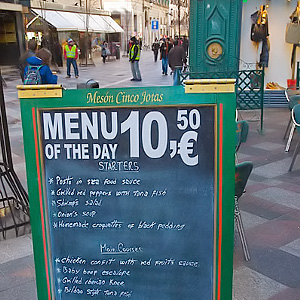 Mesón Cinco Jotas
MENU 10,50 €
OF THE DAY
STARTERS
* Pasta in sea food sauce
* Grilled red peppers with tuna fish
* Shrimps salad
* Onion's soup
* Homemade croquettes of black pudding
Main Courses
* Chicken confit with red fruits sauce
* Baby beef escalope
* Grilled iberian
* Bilbao style tuna fish